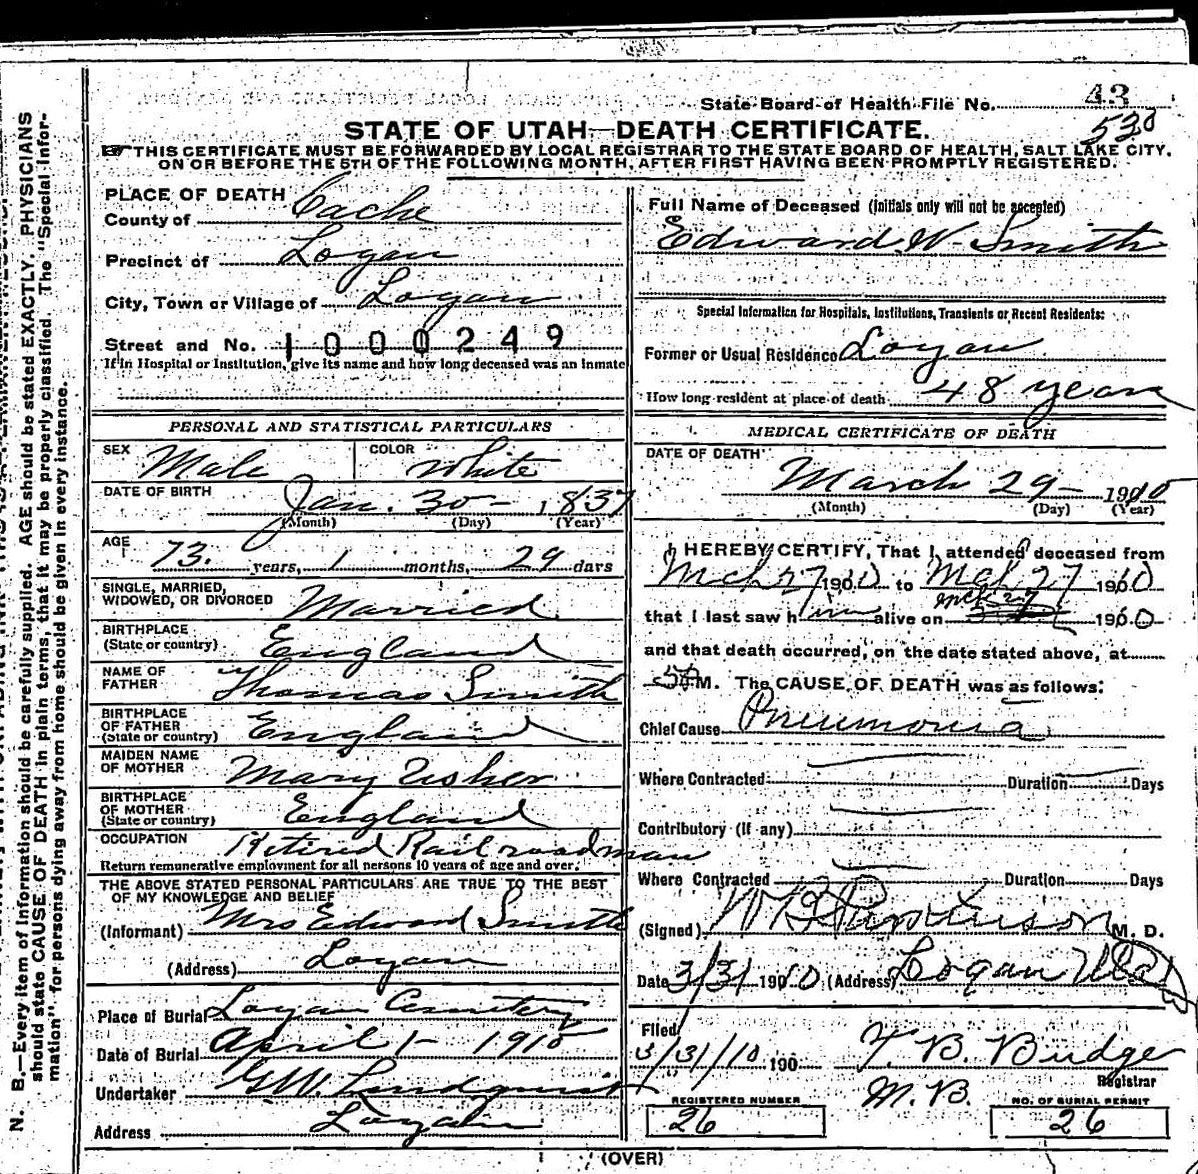 State Board of Health File No. 43
530
STATE OF UTAH—DEATH CERTIFICATE.
☞ THIS CERTIFICATE MUST BE FORWARDED BY LOCAL REGISTRAR TO THE STATE BOARD OF HEALTH, SALT LAKE CITY,
ON OR BEFORE THE 5TH OF THE FOLLOWING MONTH, AFTER FIRST HAVING BEEN PROMPTLY REGISTERED.
N. B.—Every item of information should be carefully supplied. AGE should be stated EXACTLY. PHYSICIANS
should state CAUSE OF DEATH in plain terms, that it may be properly classified. The "Special Infor-
mation" for persons dying away from home should be given in every instance.
PLACE OF DEATH
County of Cache
Precinct of Logan
City, Town or Village of Logan
Street and No. 1000249
If in Hospital or Institution, give its name and how long deceased was an inmate
PERSONAL AND STATISTICAL PARTICULARS
SEX Male COLOR White
DATE OF BIRTH
Jan. 30 - 1837
(Month) (Day) (Year)
AGE
73. years, 1 months, 29 days
SINGLE, MARRIED,
WIDOWED, OR DIVORCED Married
BIRTHPLACE
(State or country) England
NAME OF
FATHER Thomas Smith
BIRTHPLACE
OF FATHER
(State or country) England
MAIDEN NAME
OF MOTHER Mary Usher
BIRTHPLACE
OF MOTHER
(State or country) England
OCCUPATION Retired Railroadman
Return remunerative employment for all persons 10 years of age and over.
THE ABOVE STATED PERSONAL PARTICULARS ARE TRUE TO THE BEST
OF MY KNOWLEDGE AND BELIEF
(Informant) Mrs Edward Smith
(Address) Logan
Place of Burial Logan Cemetery
Date of Burial April 1 - 1910
Undertaker G.W. Lindquist
Address Logan
Full Name of Deceased (Initials only will not be accepted)
Edward W. Smith
Special Information for Hospitals, Institutions, Transients or Recent Residents:
Former or Usual Residence Logan
How long resident at place of death 48 years
MEDICAL CERTIFICATE OF DEATH
DATE OF DEATH
March 29 - 1910
(Month) (Day) (Year)
I HEREBY CERTIFY, That I attended deceased from
Mch 27 1910 to Mch 27 1910
that I last saw him alive on Mch 27 1910
and that death occurred, on the date stated above, at
M. The CAUSE OF DEATH was as follows:
Chief Cause Pneumonia
Where Contracted Duration Days
Contributory (if any)
Where Contracted Duration Days
(Signed) M. D.
Date 3/31 1910 (Address) Logan Utah
Filed
3/31/10 190 T. B. Budge
Registrar
M.B.
REGISTERED NUMBER
26
NO. OF BURIAL PERMIT
26
(OVER)